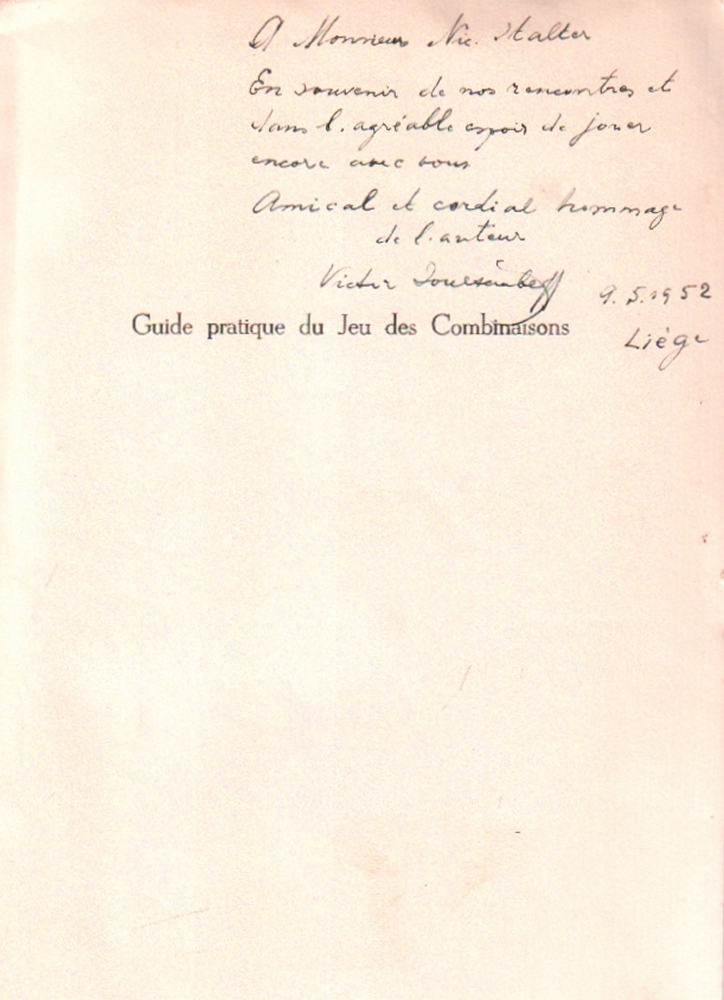 A Monsieur Nic. Stalter
En souvenir de nos rencontres et
dans l'agréable espoir de jouer
encore avec vous
Amical et cordial hommage
de l'auteur
Victor Soultanbeieff
9.5.1952
Liège
Guide pratique du Jeu des Combinaisons